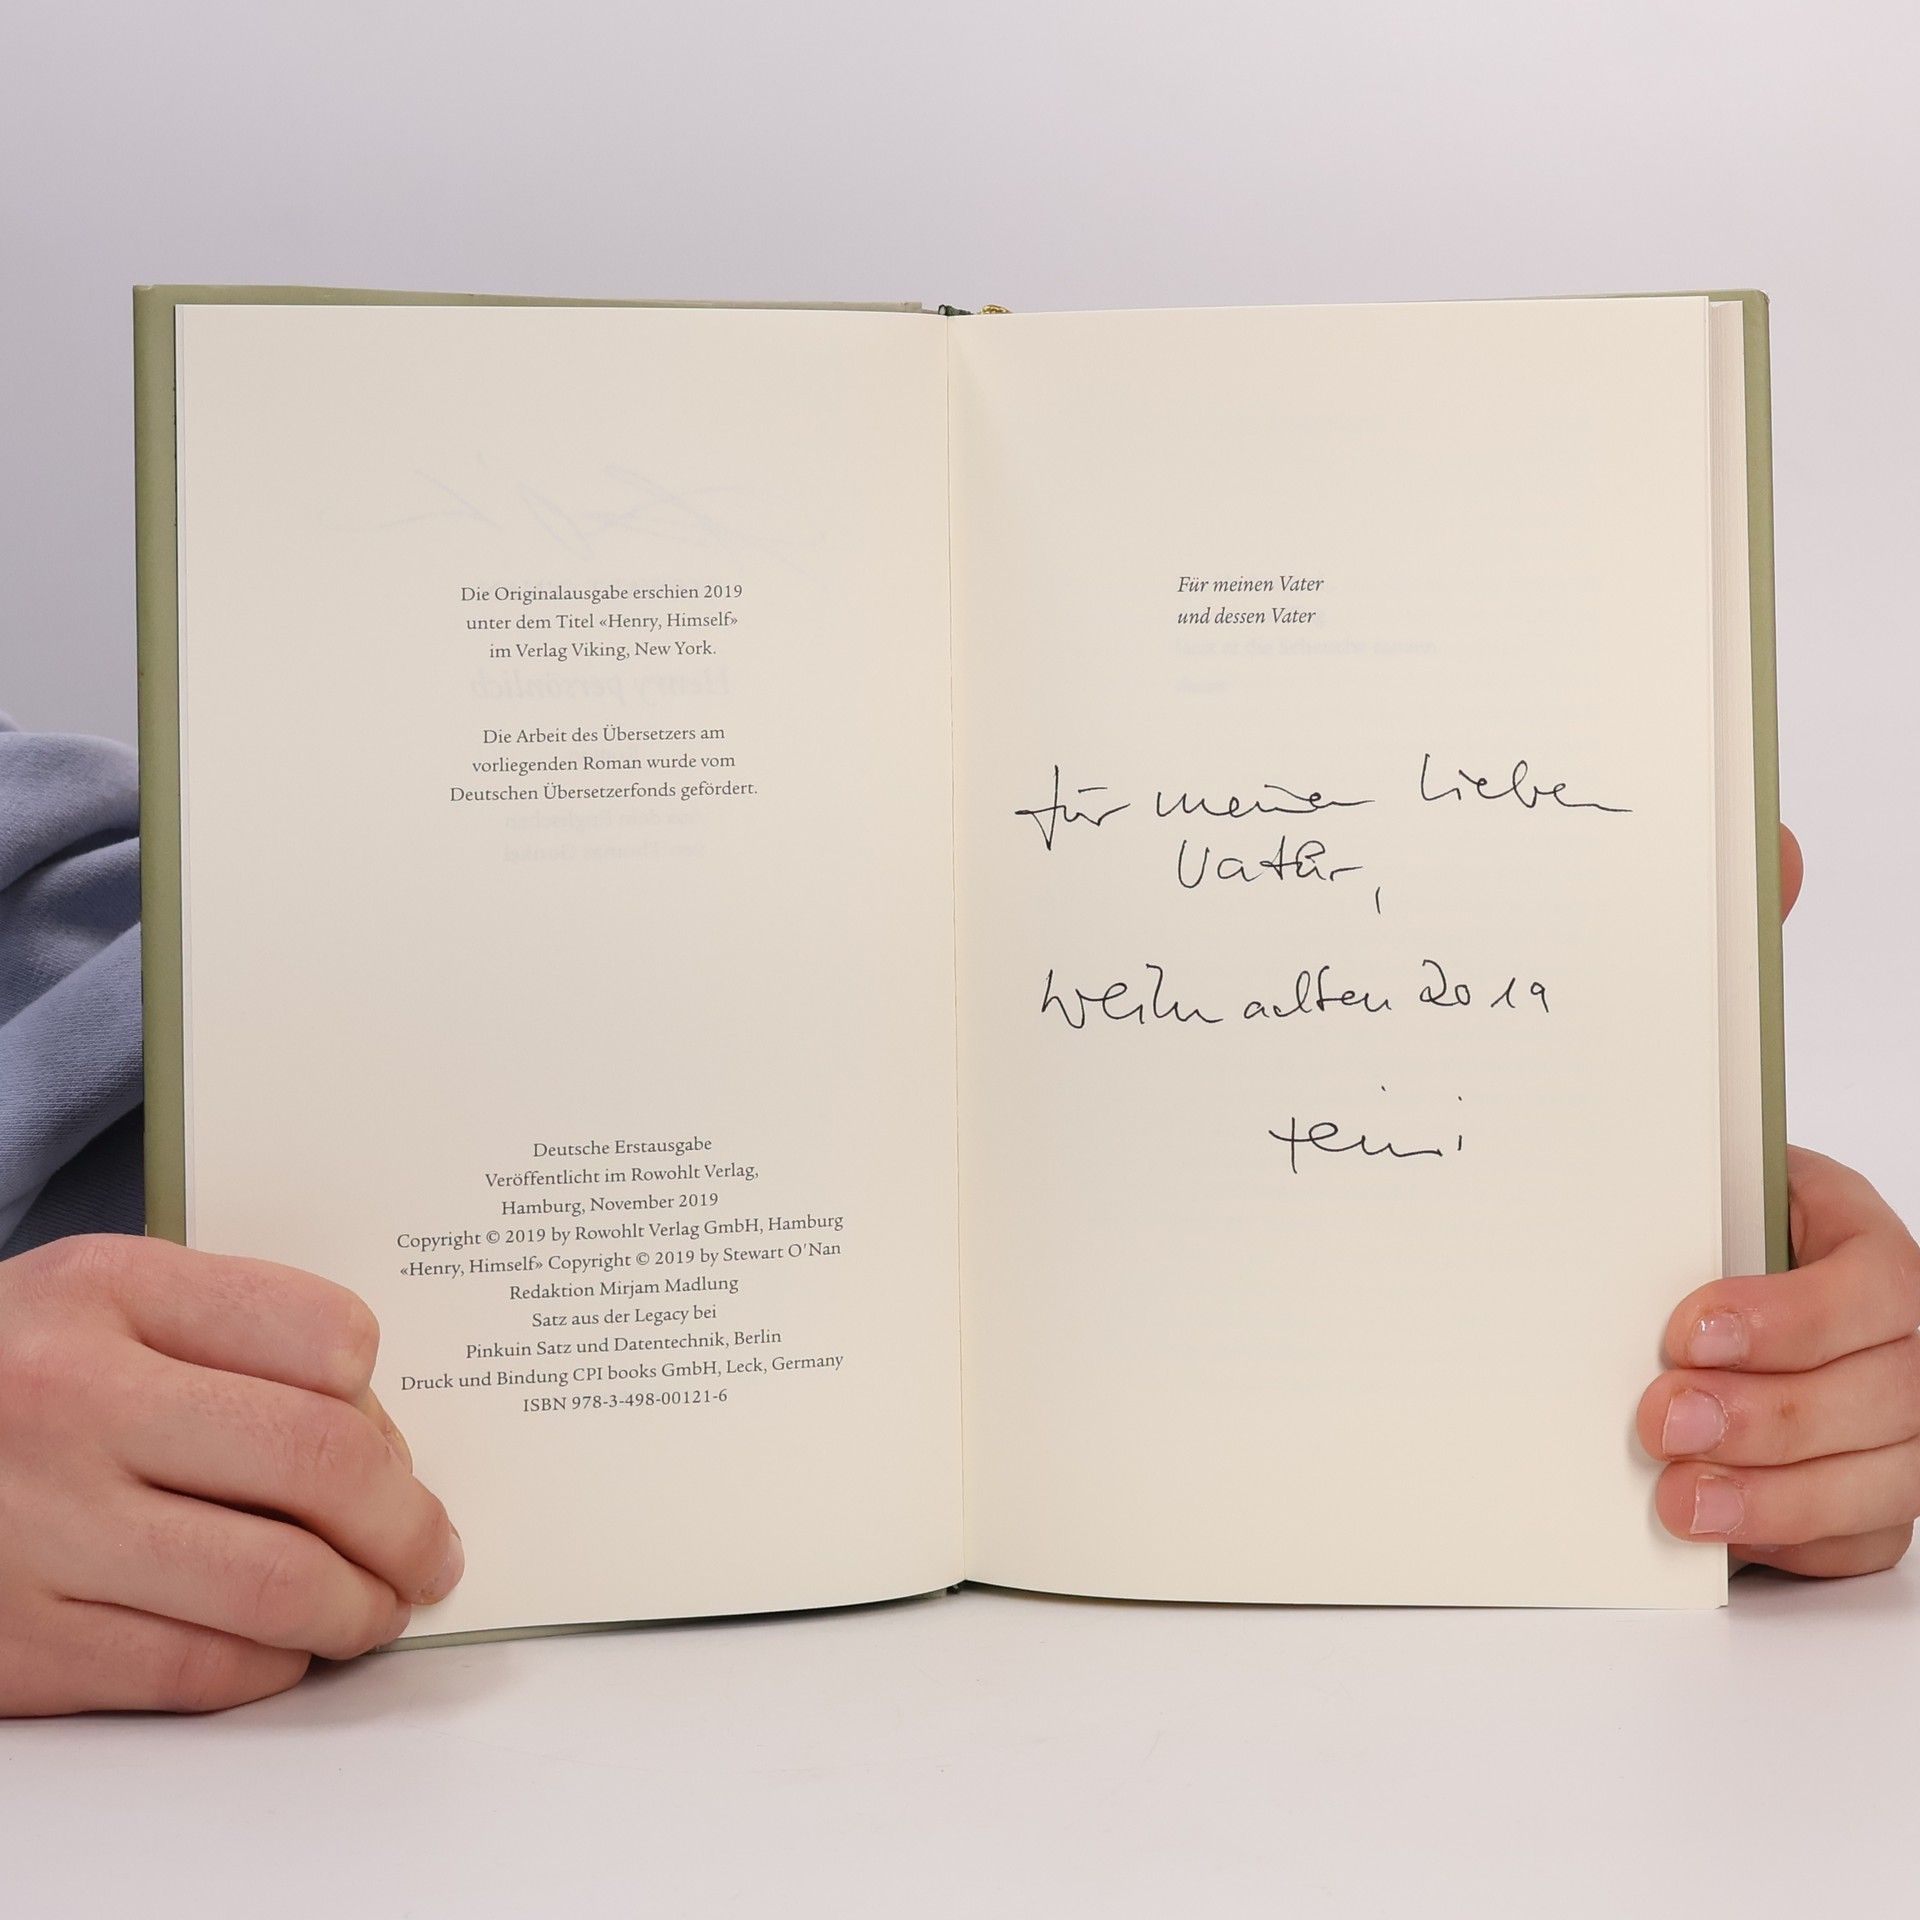 Die Originalausgabe erschien 2019
unter dem Titel «Henry, Himself»
im Verlag Viking, New York.
Die Arbeit des Übersetzers am
vorliegenden Roman wurde vom
Deutschen Übersetzerfonds gefördert.
Deutsche Erstausgabe
Veröffentlicht im Rowohlt Verlag,
Hamburg, November 2019
Copyright © 2019 by Rowohlt Verlag GmbH, Hamburg
«Henry, Himself» Copyright © 2019 by Stewart O’Nan
Redaktion Mirjam Madlung
Satz aus der Legacy bei
Pinkuin Satz und Datentechnik, Berlin
Druck und Bindung CPI books GmbH, Leck, Germany
ISBN 978-3-498-00121-6
Für meinen Vater
und dessen Vater
für meinen lieben
Vater,
Weihnachten 2019